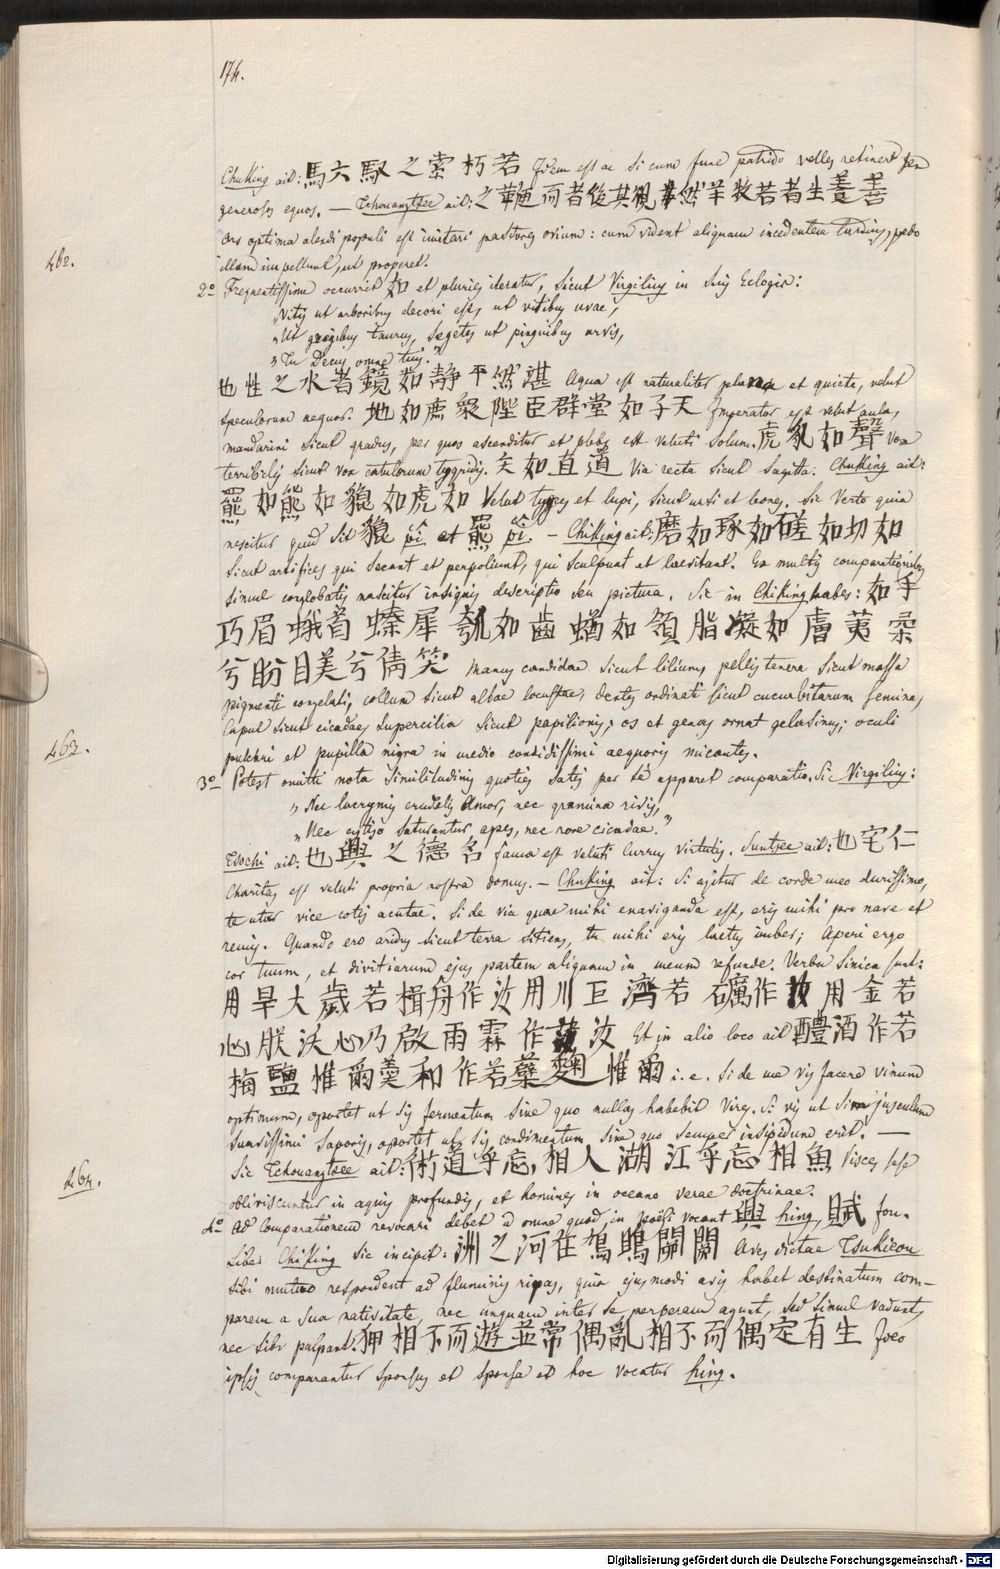 174.
Chuking ait: 馬六馭之索朽若 Idem est ac si cum fune putrido velles retinere sex
generosos equos. — Tchouangtsee ait: 之鞭而者後其視然羊牧若者生養善
Ars optima alendi populi est imitari pastores ovium: cum vident aliquam incedentem tardius, pedo
illam impellunt, ut properet.
462.
2º Frequentissime occurrit 如 et pluries iteratur, sicut Virgilius in suis Eclogis:
„Vitis ut arboribus decori est, ut vitibus uvae,
„Ut gregibus tauri, segetes ut pinguibus arvis,
„Tu Decus omne tuis.”
也性之水者鏡如靜平然湛 Aqua est naturaliter plana et quieta, velut
speculorum aequor. 地如庶衆陛臣群堂如子天 Imperator est velut aula,
mandarini sicut gradus, per quos ascenditur et plebs est veluti solum. 虎豺如聲 Vox
terribilis sicut vox catulorum tygridis. 矢如直道 Via recta sicut sagitta. Chuking ait:
羆如熊如貔如虎如 Velut tygres et lupi, sicut ursi et leones. Sic Verto quia
nescitur quid sit 貔 pî et 羆 pî. — Chiking ait: 磨如琢如磋如切如
Sicut artifices qui secant et perpoliunt, qui sculpunt et laevitant. Ex multis comparationibus
simul conglobatis nascitur insignis descriptio seu pictura. Sic in Chiking habes: 如手
巧眉蛾首螓犀瓠如齒蝤如領脂凝如膚荑柔
兮盼目美兮倩笑 Manus candidae sicut lilium, pellis tenera sicut massa
pigmenti congelati, collum sicut albae locustae, dentes ordinati sicut cucurbitarum semina,
Caput sicut cicadae, supercilia sicut papilionis; os et genas ornat gelasinus; oculi
pulchri et pupilla nigra in medio candidissimi aequoris micantes.
463.
3º Potest omitti nota similitudinis quoties satis per se apparet comparatio. Sic Virgilius:
„Nec lacrymis crudelis Amor, nec gramina rivis,
„Nec cytiso saturantur apes, nec rore cicadae.”
Tsochi ait: 也輿之德名 Fama est veluti currus virtutis. Suntsee ait: 也宅仁
Charitas est veluti propria nostra domus. — Chuking ait: Si agitur de corde meo durissimo,
te utar vice cotis acutae. Si de via quae mihi enaviganda est, eris mihi pro nave et
remis. Quando ero aridus sicut terra sitiens, tu mihi eris laetus imber; Aperi ergo
cor tuum, et divitiarum ejus partem aliquam in meum refunde. Verba Sinica sunt:
用旱大歲若楫舟作汝用川巨濟若礪作汝用金若
心朕沃心乃啟雨霖作汝 Et in alio loco ait 醴酒作若
梅鹽惟爾羹和作若櫱麴惟爾 i. e. Si de me vis facere vinum
optimum, oportet ut sis fermentum sine quo nullas habebit vires. Si vis ut sim jusculum
suavissimi saporis, oportet ut sis condimentum sine quo semper insipidum erit. —
Sic Tchouangtsee ait: 術道乎忘,相人湖江乎忘相魚 Pisces sese
obliviscuntur in aquis profundis, et homines in oceano verae doctrinae.
464.
4º Ad comparationem revocari debet id omne quod in poësi vocant 興 hing, 賦 fou.
Liber Chiking sic incipit: 洲之河在鳩鴡關關 Aves dictae Tsukieou
sibi mutuo respondent ad fluminis ripas, quia ejusmodi avis habet destinatam com-
parem a sua nativitate, nec unquam inter se perperam agunt, sed simul vadunt,
nec sibi palpant. 狎相不而遊並常偶亂相不而偶定有生 Foco
ipsis comparantur sponsus et sponsa et hoc vocatur hing.
Digitalisierung gefördert durch die Deutsche Forschungsgemeinschaft - DFG